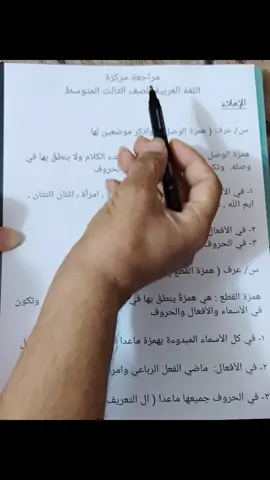 مراجعة مركزة
اللغة العربية للصف الثالث المتوسط
الإملاء
س/ عرف ( همزة الوصل واذكر موضعين لها
همزة الوصل بدء الكلام ولا ينطق بها في
وصله. وتكـ الحروف
١- في الأ ، امرأة ، اثنان اثنتان ،
ايم الله ،
٢- في الأفعال
٣- في الحروف
س/ عرف ( همزة القطع
همزة القطع : هي همزة ينطق بها في وتكون
في الأسماء والأفعال والحروف
١- في كل الأسماء المبدوءة بهمزة ماعدا
٢- في الأفعال: ماضي الفعل الرباعي وامر
٣- في الحروف جميعها ماعدا ( ال التعريف